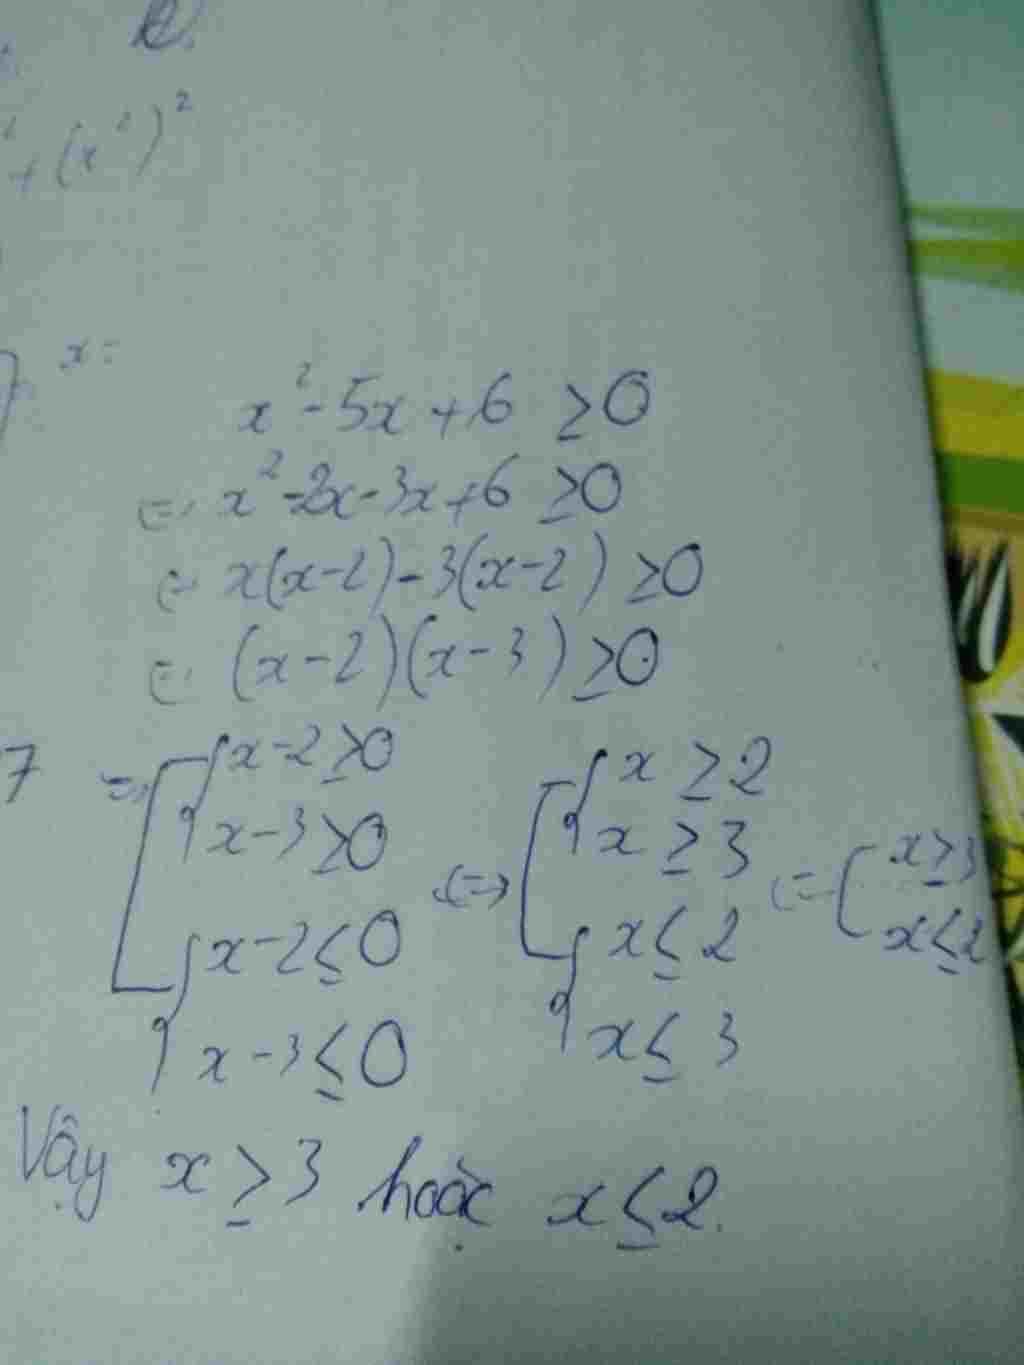 + (x²)²
x =
x² - 5x + 6 ≥ 0
⇔ x² - 2x - 3x + 6 ≥ 0
⇔ x(x - 2) - 3(x - 2) ≥ 0
⇔ (x - 2)(x - 3) ≥ 0
7 ⇔ [ { x - 2 ≥ 0 ⇔ [ { x ≥ 2
x - 3 ≥ 0 x ≥ 3 ⇔ [ x ≥ 3
{ x - 2 ≤ 0 { x ≤ 2 x ≤ 2
x - 3 ≤ 0 x ≤ 3
Vậy x ≥ 3 hoặc x ≤ 2.